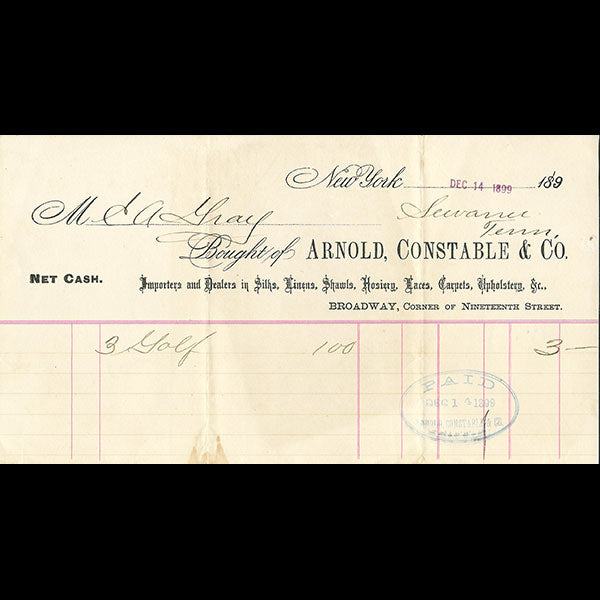 New York DEC 14 1899 189
M & A Gray Sewanee
Tenn,
Bought of ARNOLD, CONSTABLE & CO.
NET CASH. Importers and Dealers in Silks, Linens, Shawls, Hosiery, Laces, Carpets, Upholstery, &c.,
BROADWAY, CORNER OF NINETEENTH STREET.
3 Golf 100 3 —
PAID
DEC 14 1899
ARNOLD, CONSTABLE & CO.